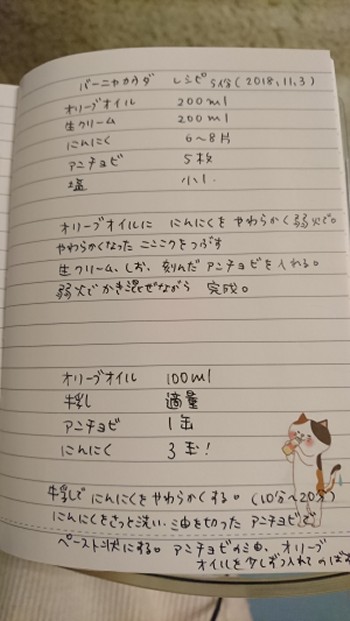 バーニャカウダ レシピ 5人分 (2018,11,3)
オリーブオイル 200ml
生クリーム 200ml
にんにく 6〜8片
アンチョビ 5枚
塩 小1
オリーブオイルに にんにくを やわらかく弱火で。
やわらかくなった にんにくをつぶす
生クリーム、しお、刻んだ アンチョビを入れる。
弱火で かき混ぜながら 完成。
オリーブオイル 100ml
牛乳 適量
アンチョビ 1缶
にんにく 3玉!
牛乳で にんにくを やわらかくする。(10分〜20分)
にんにくをさっと洗い、油を切った アンチョビで
ペースト状にする。アンチョビの油、オリーブ
オイルを少しずつ入れて のばす